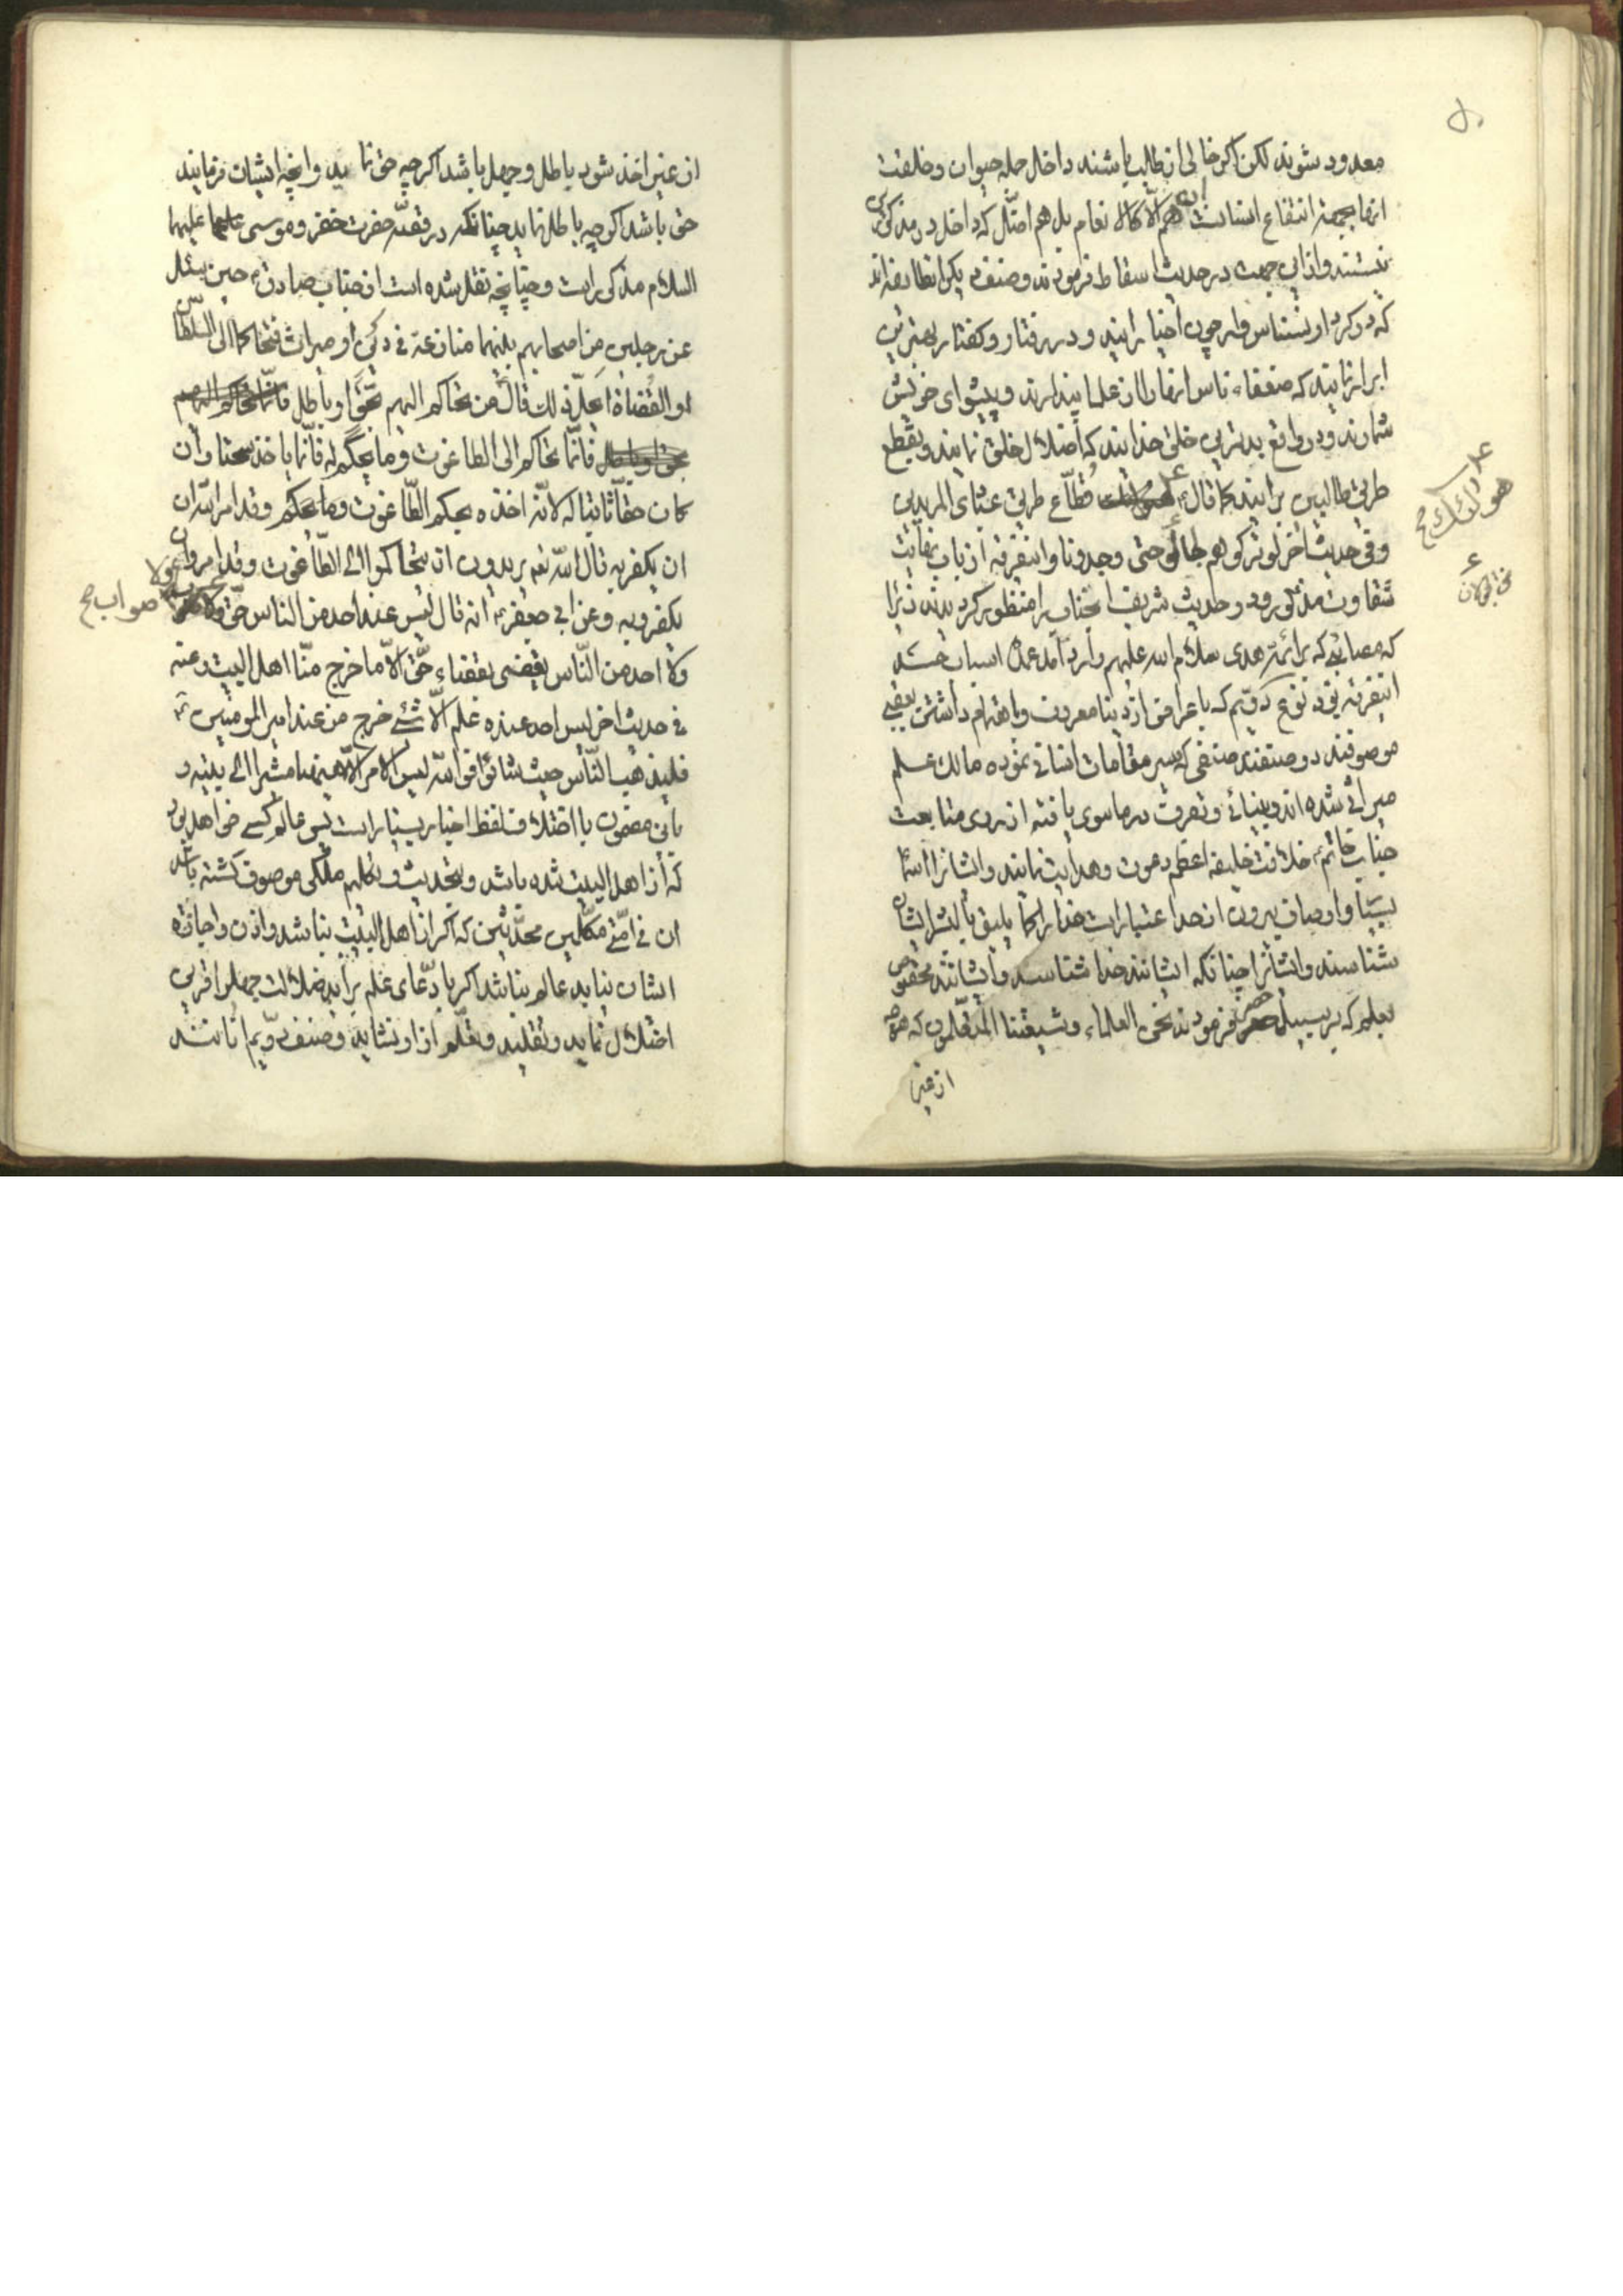 معدود شوند لکن اکر خالی از طالب باشند داخل جمله حیوان و خلقت
انها بجهة انتفاع انسانست ان هم الا کالا نعام بل هم اضل که داخل در مذکور
نیستند و از این جهت در حدیث اسقاط فرمودند و صنف دیگر انطایفه اند
که در کردار نسناس وار چون اخیار ایند و در رفتار و کفتار بهترین
ابرار نمایند که ضعفاء ناس انها را از علما پندارند و پیشوای خویش
شمارند و در واقع بدترین خلق خدایند که اضلال خلق نمایند و بقطع
طریق طالبین برایند کما قال ع قطّاع طریق عبادی المریدین
و فی حدیث اخر لو ترکوهم لجالو حتی وجدونا و اینفرقه از باب نهایت
شقاوت مذکور و در حدیث شریف انجناب منظور نکردیدند زیرا
که مصائبی که بر ائمه هدی سلام الله علیهم وارد آمد عمده اسباب
اینفرقه بود نوع دویم که باعراض از دنیا معروف و اهتمام داشتن بعقبی
موصوفند دو صنفند صنفی که سیر مقامات انسانی نموده مالک علم
میراثی شده اند و بینائی و تصرف در ماسوی یافته از روی متابعت
جناب خاتم ص خلافت خلیفه اعظم دعوت و هدایت نمایند و ایشانرا اسما
بسیار و اوصاف بیرون از حد اعتبار است خدا را کما یلیق بالبشر ایشان
شناسند و ایشانرا چنانکه ایشانند خدا شناسد و ایشانند مخصوص
بعلم که بر سبیل حصر فرمودند نحن العلماء و شیعتنا المتعلمون که هرچه
از غیر
هو اولئک صح
از غیر اخذ شود باطل و جهل باشد اکر چه حق نماید و انچه ایشان فرمایند
حق باشد اکر چه باطل نماید چنانکه در قصّه حضرت خضر و موسی علیهما
السلام مذکور است و چنانچه نقل شده است از جناب صادق ع حین سئل
عن رجلین من اصحابهم بینهما منازعة فی دین او میراث فتحاکما الی السلطان
او القضاة ایحلّ ذلک قال من تحاکم الیهم بحق او باطل فانما تحاکم الیهم
بحق او باطل فانّما تحاکم الی الطاغوت و ما یحکم له فانّما یاخذ سحتا و ان
کان حقا ثابتا له لانه اخذه بحکم الطّاغوت و ما یحکم و قد امر الله ان
ان یکفر به قال الله تعم یریدون ان یتحاکموا الی الطّاغوت و قد امروا ان
یکفروا به و عن ابی جعفر ع انه قال لیس عند احد من الناس حق ولا صواب صح
ولا احد من النّاس یقضی بقضاء حق الّا ما خرج منّا اهل البیت و عنه
فی حدیث اخر لیس احد عنده علم الّا شئ خرج من عند امیر المومنین ع
فلیذهب النّاس حیث شاؤا فو الله لیس الامر الّا هیهنا مشیرا الی بیته و
باین مضمون با اختلاف لفظ اخبار بسیار است پس عالم کسی خواهد بود
که از اهل البیت شده باشد و بتحدیث و تکلیم ملکی موصوف کشته باشد
ان فی امّتی مکلّمین محدّثین که اکر از اهل البیت نباشد و اذن و اجازه
ایشان نیاید عالم نباشد اکر با دّعای علم براید ضلالت جهل افزاید
اضلال نماید و تقلید و تعلّم از او نشاید و صنف دویم